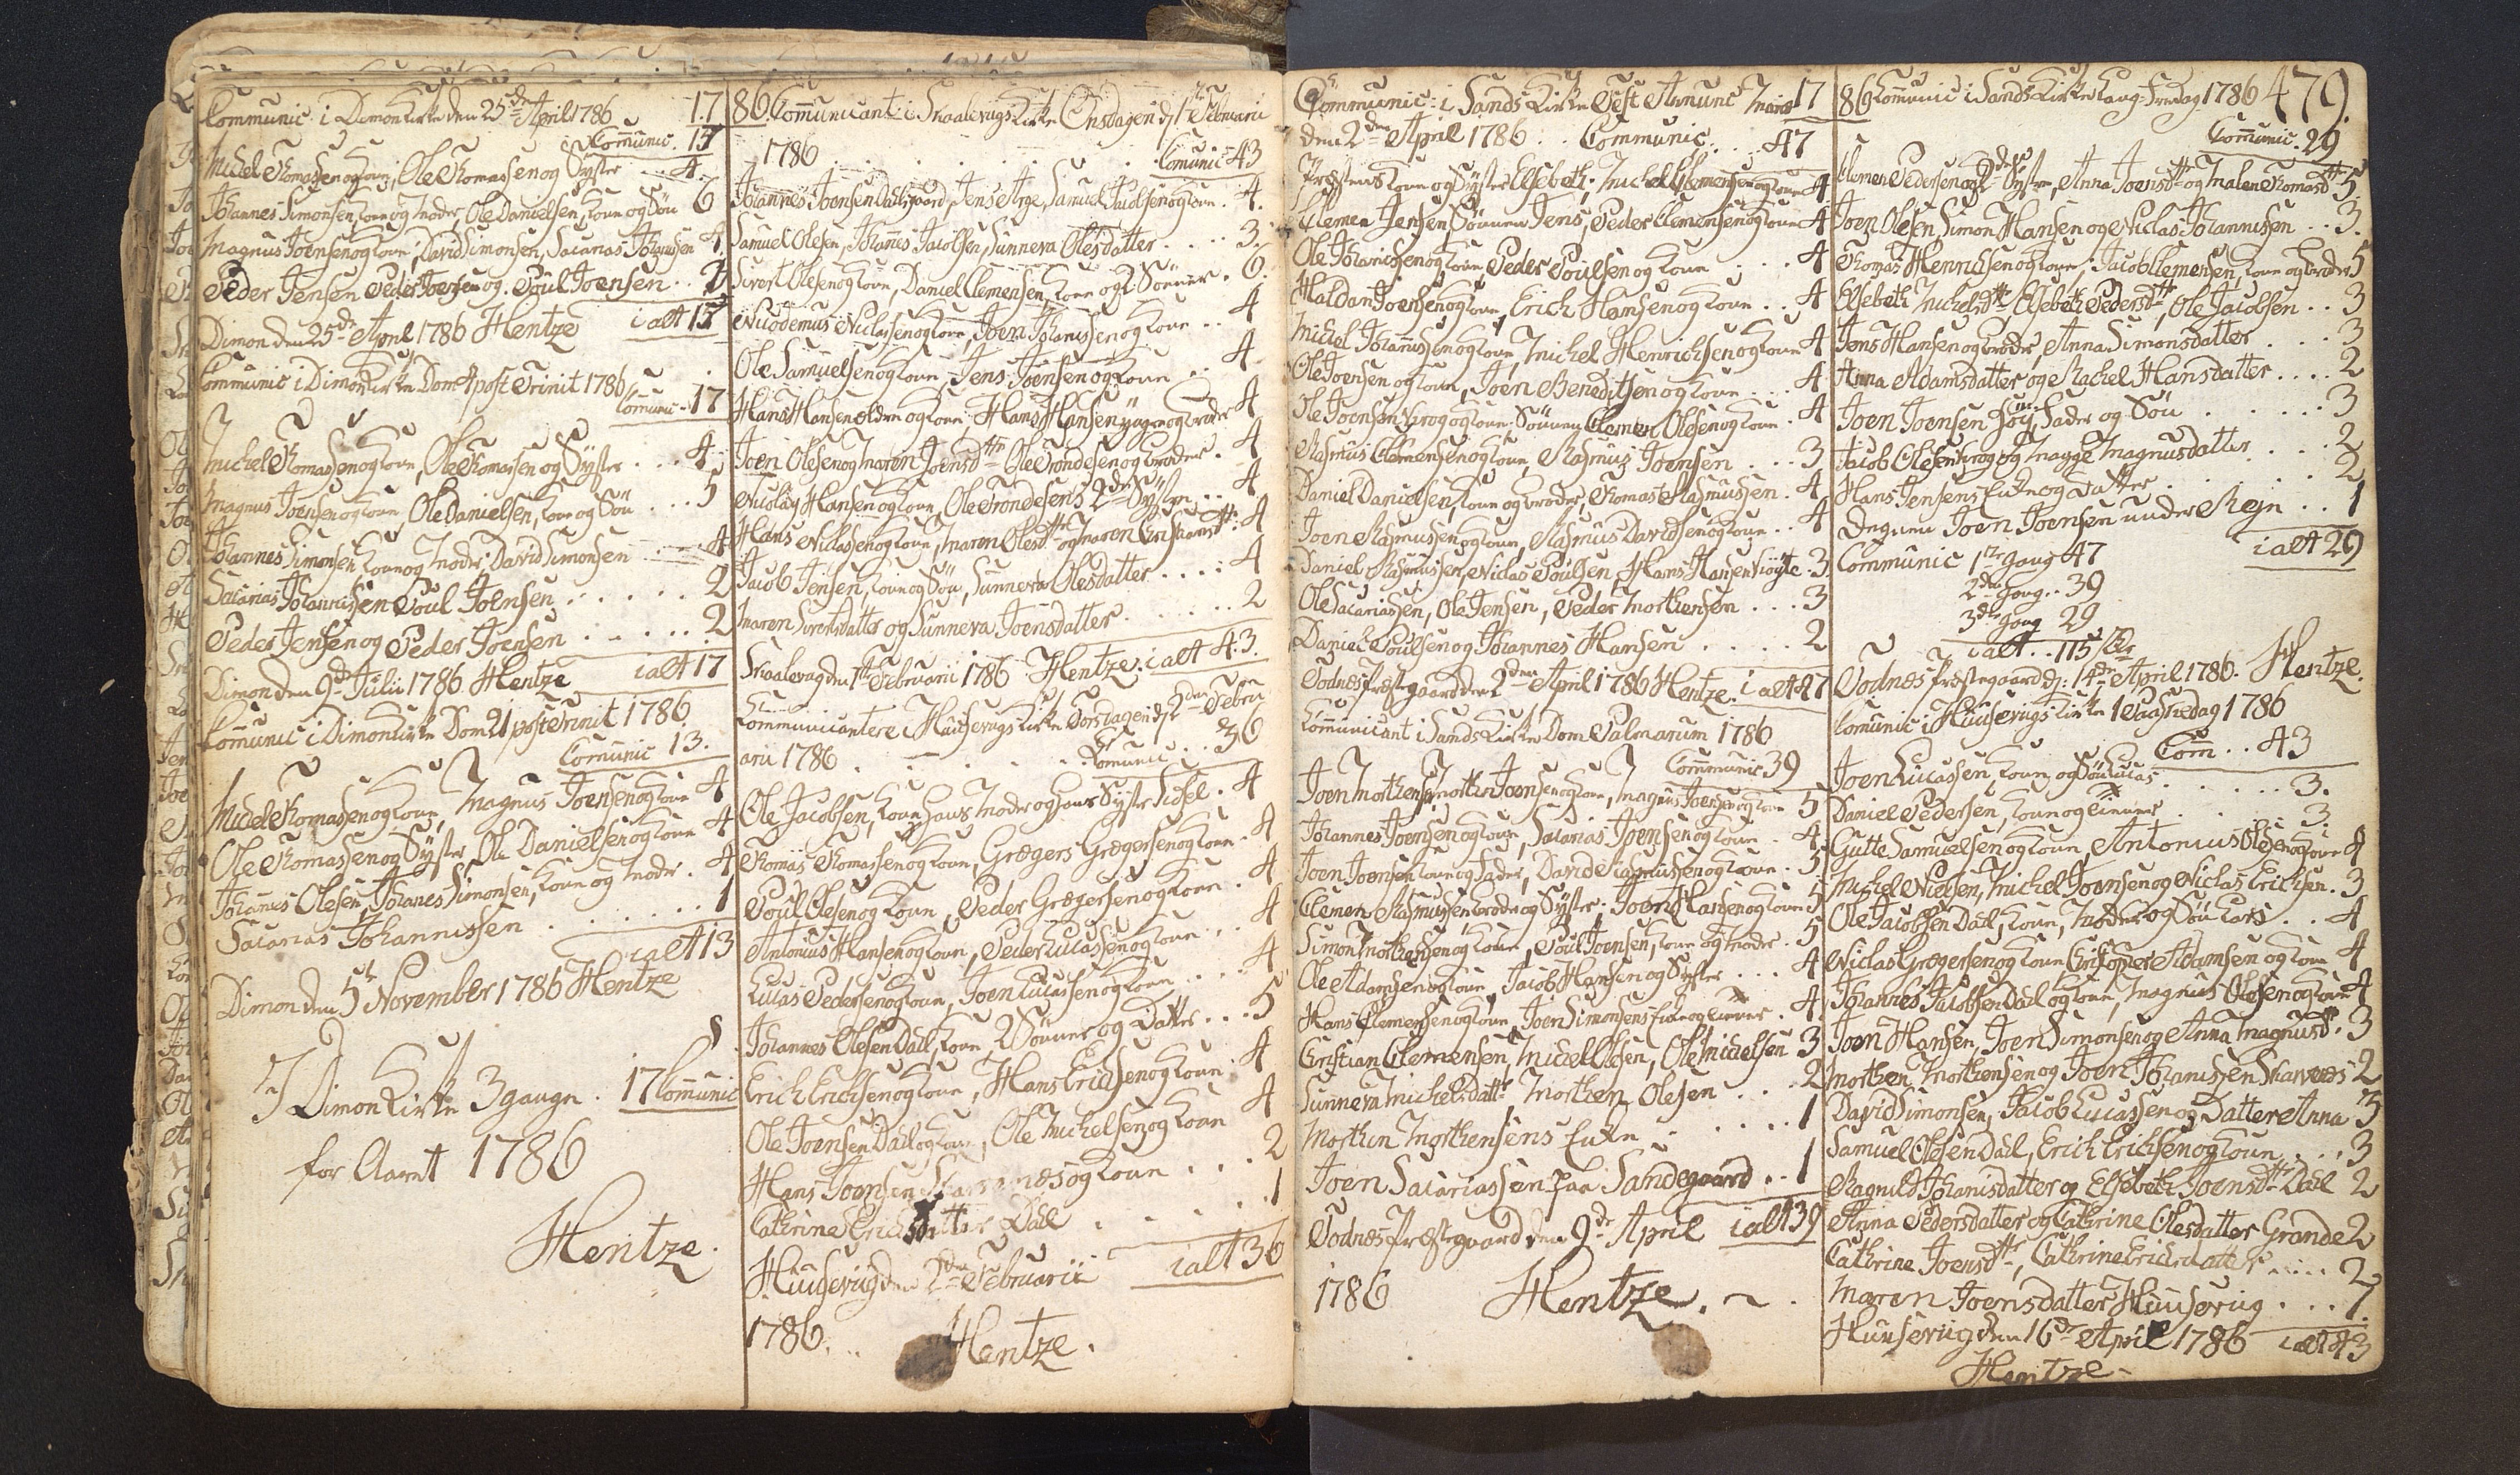 Communic i Dimon Kirke den 25de April 1786
Comunic. 15
Michel Thomassen og Kone, Ole Thomassen og Syster .. 4.
Johannes Simonsen, Kone og Moder, Ole Danielsen, Kone og Søn 6
Magnus Joensen og Kone, David Simonsen, Sacarias Johanissen 4
Peder Jensen Peder Joensen og Poul Joensen
Dimon den 25de April 1786 Hentze ialt
Communic i Dimon Kirke Dom 4 post Trinit 1786
Comunic 17
Michel Thomassen og Kone, Ole Thomassen og Syster ... 4
Magnus Joensen og Kone, Ole Danielsen, Kone og Søn ... 5
Johannes Simonsen Kone og Moder, David Simonsen 4
Sacarias Johannissen Poul Joensen ...... 2
Peder Jensen og Peder Joensen ..... 2
Dimon den 9de Julii 1786 Hentze ialt 17
Communic i Dimon Kirke Dom 21 post Trinit 1786
Comunic 13.
Michel Thomassen og Kone, Magnus Joensen og Kone 4
Ole Thomassen og Syster, Ole Danielsen og Kone 4
Johannes Olesen, Johanes Simonsen, Kone og Moder . 4
Sacarias Johannissen ..... 1
ialt 13
Dimon den 5te November 1786 Hentze
I Dimon Kirke 3 gange . 17 Comunic
for Aaret 1786
Hentze.
17 86. Communicant i Skaalevigs Kirke Onsdagen d. 1te Februarii
1786 Comunic 43
Johannes Joensen Dalsgaard, Jens Arge, Samuel Paulsen og Kone . 4.
Samuel Olesen, Johannes Jacobsen, Sunneva Olesdatter .... 3.
Sivert Olesen og Kone, Daniel Clemensen, Kone og 2 Sønner . 6.
Nicodemus Niclassen og Kone, Joen Johanissen og Kone .. 4
Ole Samuelsen og Kone, Jens Joensen og Kone .. 4
Hans Hansen ældre og Kone, Hans Hansen yngre og broder 4
Joen Olesen og Maren Joensdttr Ole Trondesen og broder . 4
Nicolaÿ Hansen og Kone, Ole Trondesens 2de Systre .. 4
Hans Niclassen og Kone, Maren Olesdttr og Maren 4
Jacob Jensen, Kone og Søn, Sunneva Olesdatter .... 4
Maren Sivertsdatter og Sunneva Joensdatter ...... 2
Skaalevig den 1te Februarii 1786 Hentze. ialt 43.
Communicantere i Hüüsevigs Kirke Torsdagen d. 2den Febru
arii 1786 Comunic .. 36
Ole Jacobsen, Kone hans Moder og hans Syster Sidsel . 4
Thomas Thomassen og Kone, Grægers Grægersen og Kone . 4
Poul Olesen og Kone, Peder Grægersen og Kone . 4
Antonius Hansen og Kone, Peder Lucassen og Kone .. 4
Lucas Pedersen og Kone, Joen Lucassen og Kone .... 4
Johannes Olesen Dahl, Kone, 2 Sønner og Datter ... 5
Erich Erichsen og Kone, Hans Erichsen og Kone . 4
Ole Joensen Dahl og Kone, Ole Michelsen og Kone 4
Hans Joensen Skarvenæs og Kone ... 2
Cathrine Erichsdatter Dahl 1
Hüüsevig den 2den Februarii ialt 36
1786. .. Hentze.
Communic: i Sands Kirke Fest Annunc Mariæ 17
den 2den April 1786 .. Communic. .. 47
Præstens Kone og Syster Elsebeth, Michel Clemensen og Kone 4
Clemen Jensen Sønnen Jens, Peder Clemensen og Kone 4
Ole Johannissen og Kone Peder Poulsen og Kone ... 4
Haldan Joensen og Kone, Erich Hansen og Kone .. 4
Michel Johannissen og Kone, Michel Henrichsen og Kone 4
Ole Joensen og Kone, Joen Benedictsen og Kone ... 4
Ole Joensen Krog og Kone, Sønnen Clemen Olesen og Kone . 4
Rasmus Clemensen og Kone, Rasmus Joensen ... 3
Daniel Danielsen, Kone og broder, Thomas Rasmussen . 4
Joen Rasmussen og Kone, Rasmus Davidsen og Kone .. 4
Daniel Rasmussen, Niclas Poulsen, Hans Hansen 3
Ole Sacariassen, Ole Jensen, Peder Morthensen ... 3
Daniel Poulsen og Johannes Hansen ..... 2
Todnæs Præstegaard den 2den April 1786 Hentze. ialt 47
Communicant i Sands Kirke Dom Palmarum 1786
Communic 39
Joen Morthensen, Morthen Joensen og Kone, Magnus Joensen og Kone 5
Johannes Joensen og Kone, Sacarias Joensen og Kone . 4.
Joen Joensen Kone og Fader, David Rasmussen og Kone . 5
Clemen Rasmussen broder og Syster, Joen Hansen og Kone 5
Simon Morthensen og Kone, Poul Joensen, Kone og Moder . 5
Ole Adamsen og Kone, Jacob Hansen og Syster ... 4
Hans Clemensen og Kone, Joen Simonsens Enke og 4.
Christian Clemensen, Michel Olsen, Ole Michelsen 3
Sunneva Michelsdattr Morthen Olesen ... 2
Morthen Morthensens Enke ...... 1
Joen Sacariassen paa Sandegaard .. 1
Todnæs Præstegaard den 9de April ialt 39
1786 Hentze.
86 Communic i Sands Kirke Lang-Fredag 1786 479.
Comunic. 29
Clemen Pedersen og 2de Systre, Anna Joensdttr og Malene Thomasdttr 5
Joen Olesen Simon Hansen og Niclas Johannissen .. 3.
Thomas Henrichsen og Kone, Jacob Clemensen, Kone og broder 5
Elsebeth Michelsdttr, Elsebeth Pedersdttr, Ole Jacobsen .. 3
Jens Hansen og broder, Anna Simonsdatter ... 3
Anna Adamsdatter og Rachel Hansdatter .... 2
Joen Joensen Fader og Søn ...... 3
Jacob Olesen Krog og Magge Magnusdatter ... 2
Hans Jensens Enke og Datter ..... 2
Degnen Joen Joensen under Rejn .. 1
Communic 1te gang 47 ialt 29
2den gang .. 39
3de gang 29
ialt .. 115
Todnæs Præstegaard d: 14de April 1786. Hentze.
Comunic i Hüüsevigs Kirke 1 Paaskedag 1786
Com .. 43
Joen Lucassen, Kone og Søn Lucas ...... 3.
Daniel Pedersen, Kone og 3
Gutte Samuelsen og Kone, Antonius Olesen og Kone 4
Michel Nielsen, Michel Joensen og Niclas Erichsen . 3
Ole Jacobsen Dahl, Kone, Moder og Søn Lars .. 4
Niclas Grægersen og Kone Christopher Adamsen og Kone 4
Johannes Jacobsen Dahl og Kone, Magnus Olesen og Kone 4
Joen Hansen, Joen Simonsen og Anna Magnusd. 3
Morthen Morthensen og Joen Johanissen Skarvenæs 2
David Simonsen, Jacob Lucassen og Datter Anna 3
Samuel Olesen Dahl, Erich Erichsen og Kone ... 3
Ragnild Johanisdatter og Elsebeth Joensdttr Dahl 2
Anna Pedersdatter og Cathrine Olesdatter Grande 2
Cathrine Joensdttr, Cathrine Erichsdatter .... 2
Maren Joensdatter Hüüsevig ... 1.
Hüüsevig den 16de April 1786 ialt 43
Hentze